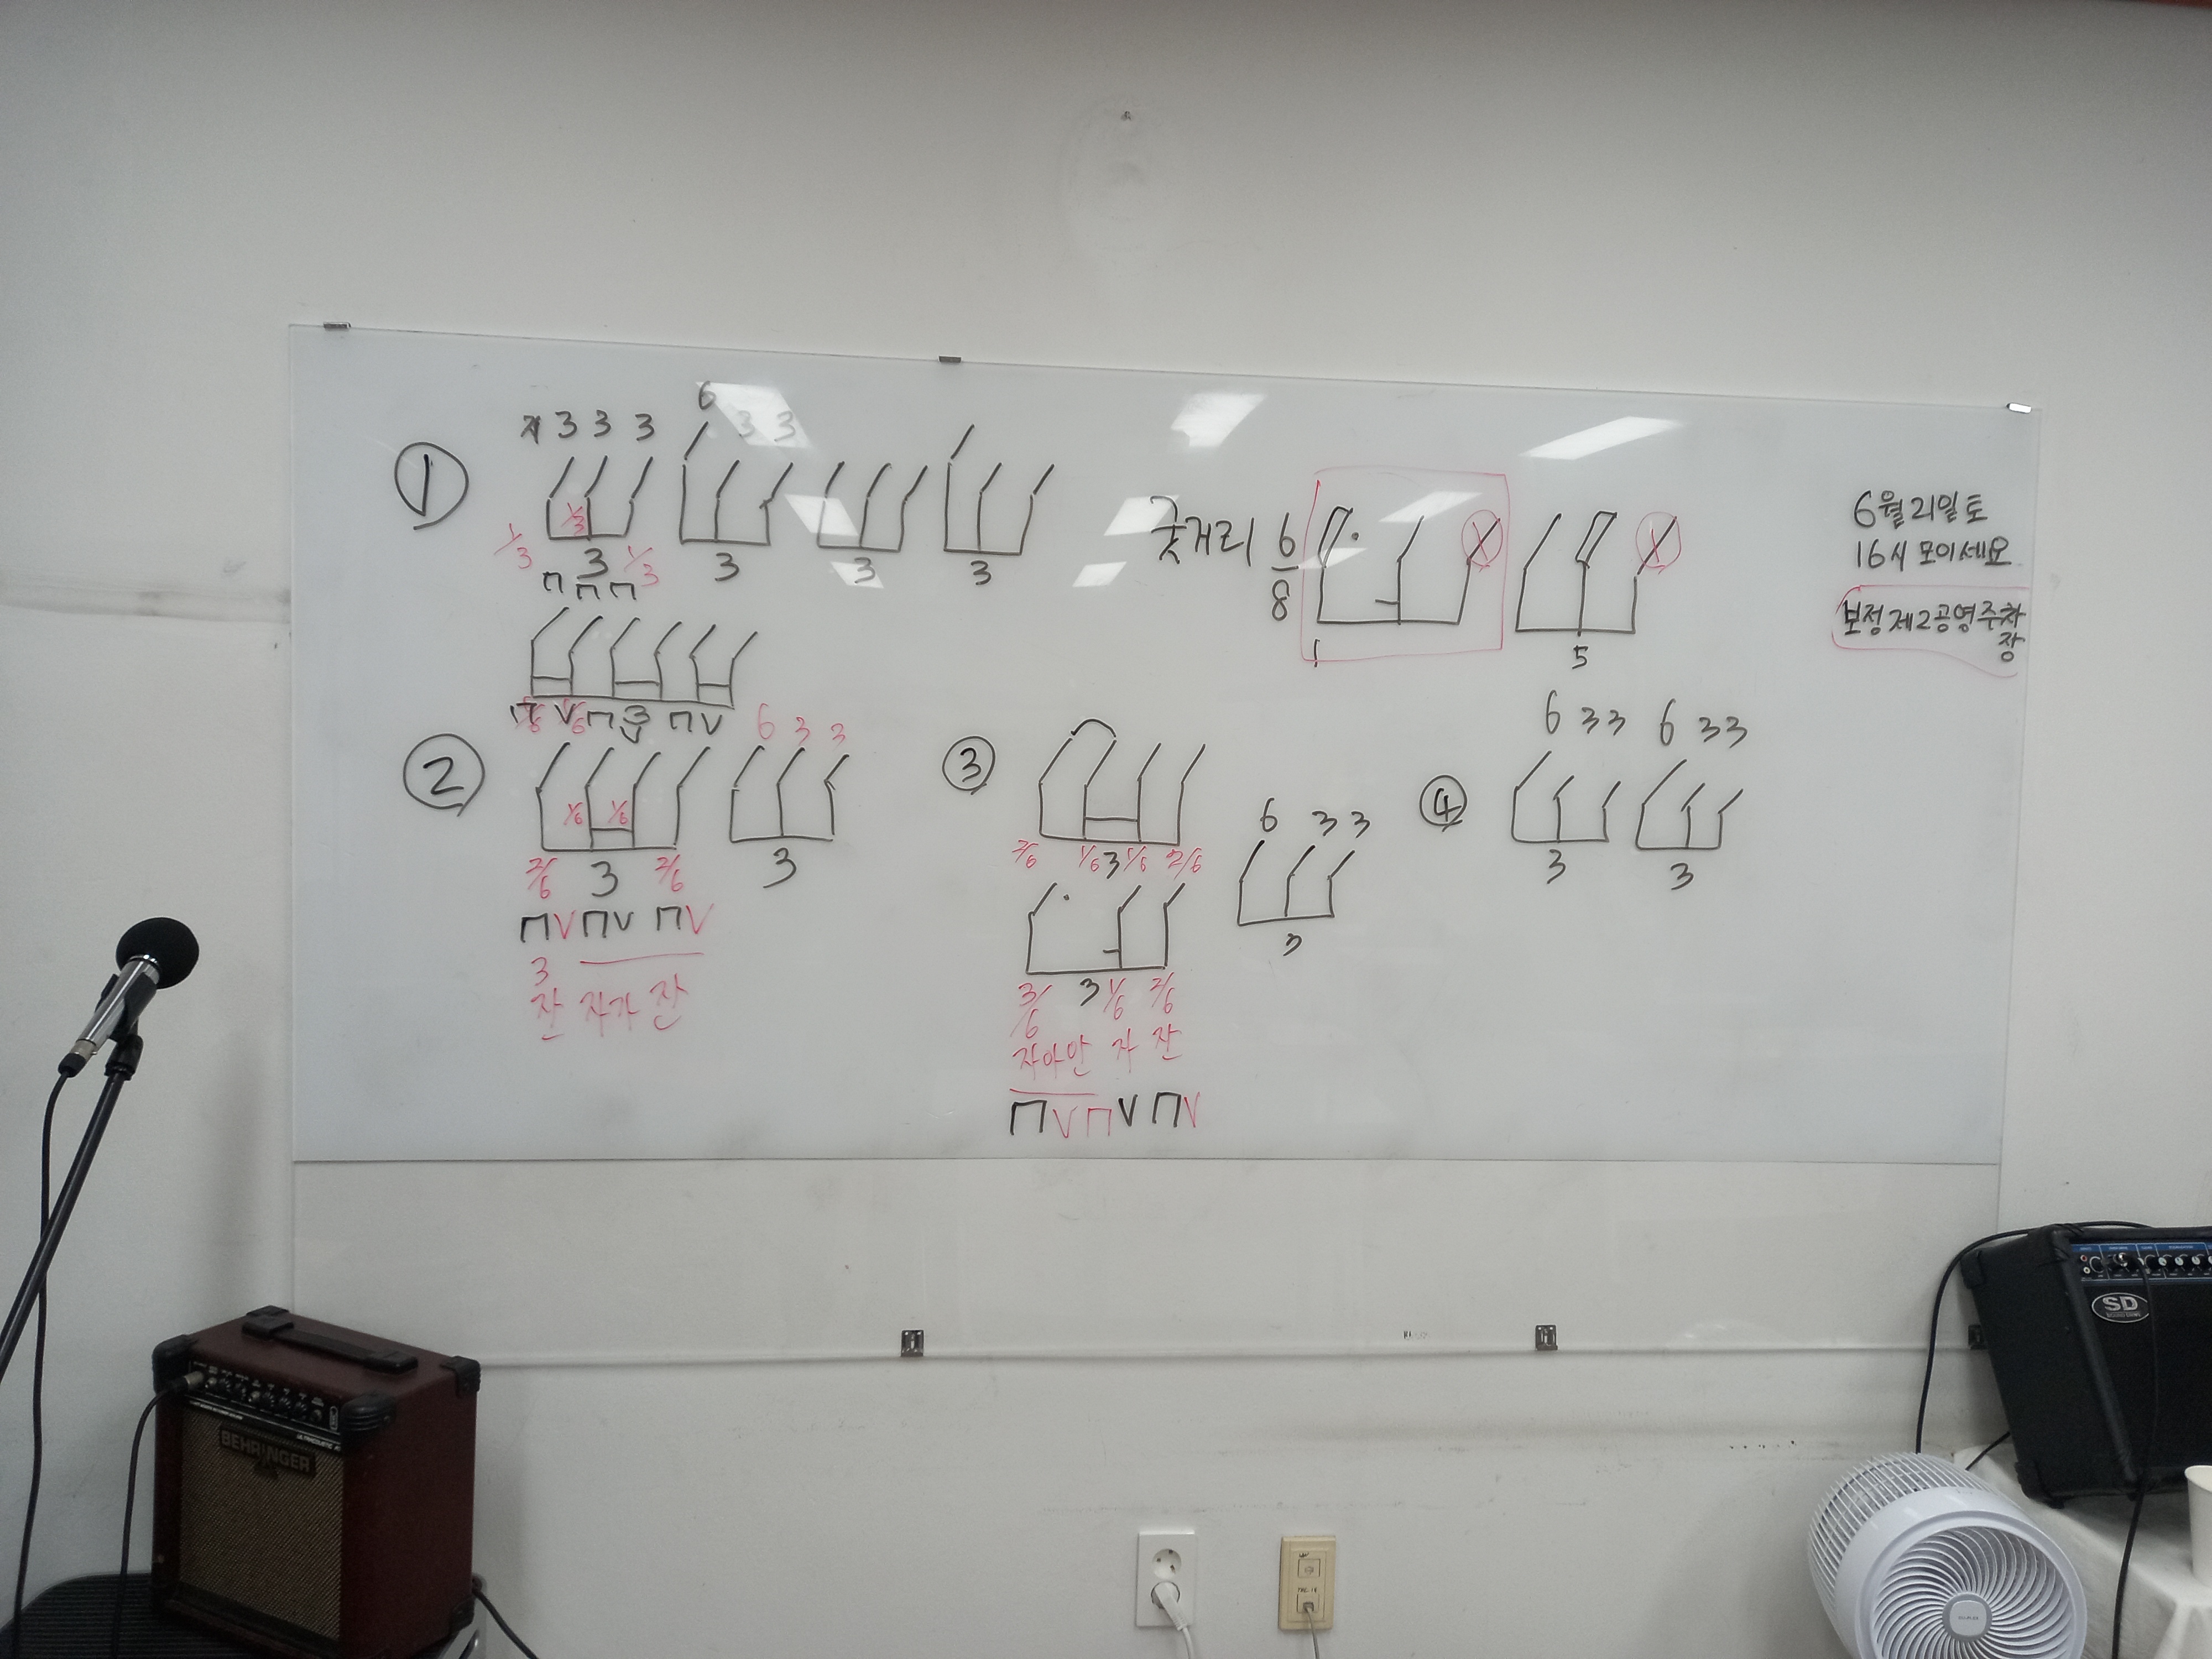 ① 3 3 3 6 3 3
1/3 1/3 1/3
3 3 3 3
⊓ ⊓ ⊓
⊓ V ⊓ 3 V ⊓ V
② 6 3 3
1/6 1/6
2/6 3 2/6 3
⊓ V ⊓ V ⊓ V
3
잔 자가 잔
③
2/6 1/6 3 1/6 2/6
6 3 3
3
3/6 3 1/6 2/6
자아안 자 잔
⊓ V ⊓ V ⊓ V
굿거리 6/8
1 5
④ 6 3 3 6 3 3
3 3
6월 21일 토
16시 모이세요
보정 제2공영주차
장
BEHRINGER
SD